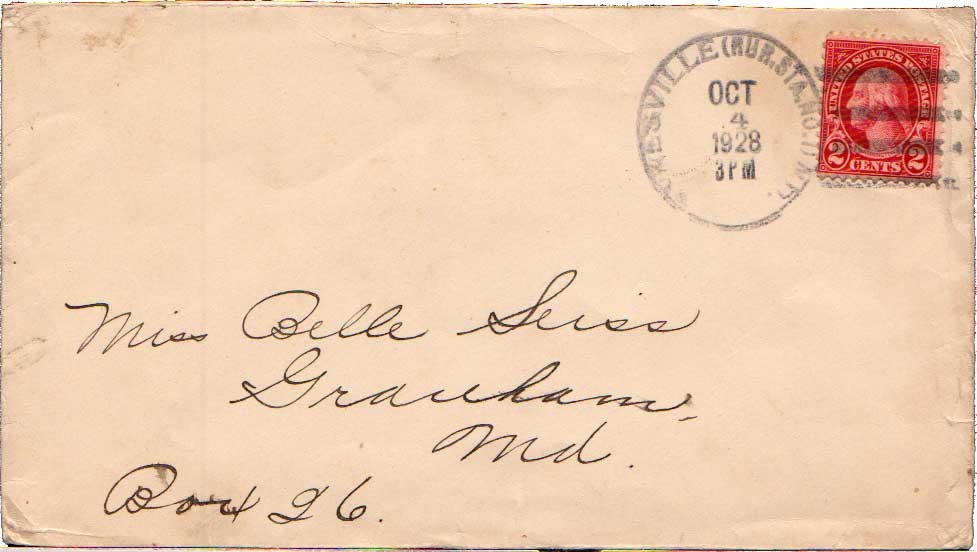 (RUR. STA. NO. 1)
OCT
4
1928
3 PM
UNITED STATES POSTAGE
2 CENTS 2
Miss Belle Seiss
Graceham,
Md.
Box 26.